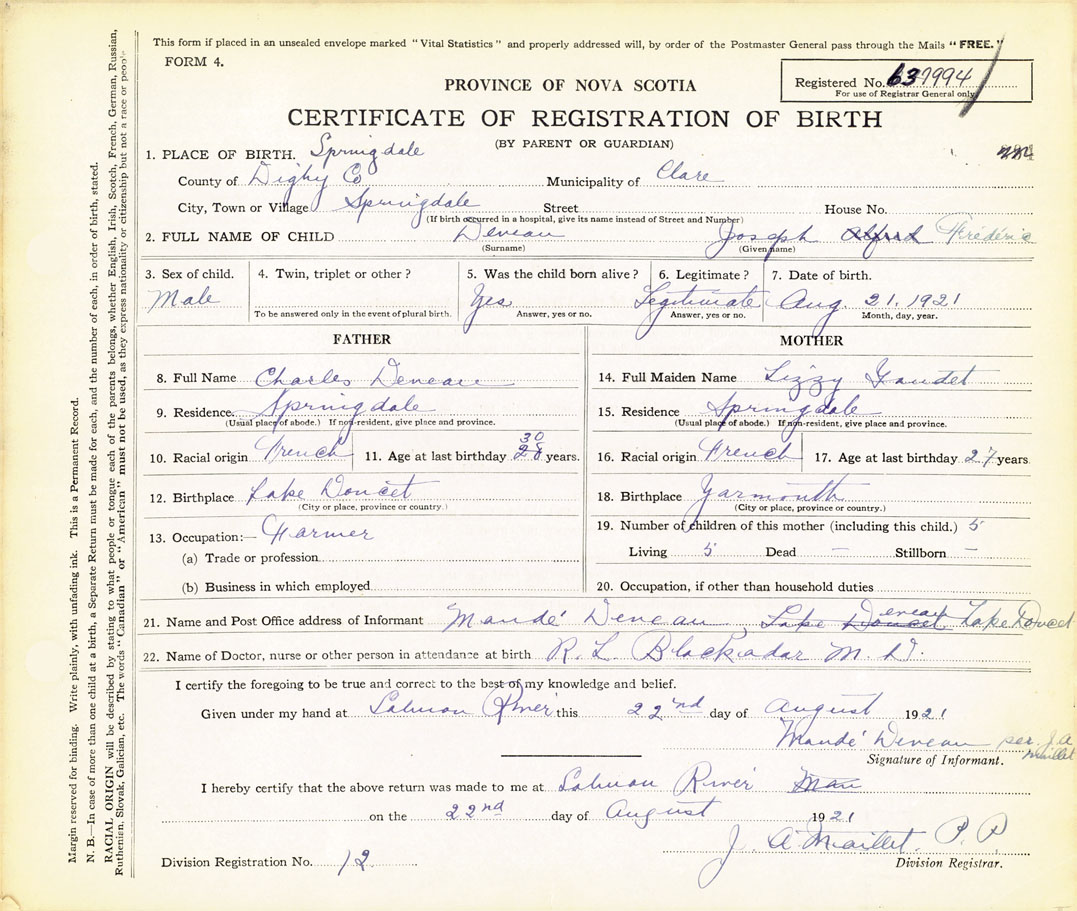 This form if placed in an unsealed envelope marked "Vital Statistics" and properly addressed will, by order of the Postmaster General pass through the Mails "FREE."
FORM 4.
PROVINCE OF NOVA SCOTIA
Registered No. 637994
For use of Registrar General only
CERTIFICATE OF REGISTRATION OF BIRTH
(BY PARENT OR GUARDIAN)
1. PLACE OF BIRTH. Springdale
County of Digby Co Municipality of Clare
City, Town or Village Springdale Street House No.
(If birth occurred in a hospital, give its name instead of Street and Number)
2. FULL NAME OF CHILD Deveau Joseph Alfred Fréderic
(Surname) (Given name)
3. Sex of child. 4. Twin, triplet or other? 5. Was the child born alive? 6. Legitimate? 7. Date of birth.
Male Yes Legitimate Aug. 21, 1921
To be answered only in the event of plural birth. Answer, yes or no. Answer, yes or no. Month, day, year.
FATHER MOTHER
8. Full Name Charles Deveau 14. Full Maiden Name Lizzy Gaudet
9. Residence. Springdale 15. Residence Springdale
(Usual place of abode.) If non-resident, give place and province. (Usual place of abode.) If non-resident, give place and province.
30
10. Racial origin French 11. Age at last birthday 28 years. 16. Racial origin French 17. Age at last birthday 27 years
12. Birthplace Lake Doucet 18. Birthplace Yarmouth
(City or place, province or country.) (City or place, province or country.)
13. Occupation:— Farmer 19. Number of children of this mother (including this child.) 5
(a) Trade or profession Living 5 Dead — Stillborn —
(b) Business in which employed 20. Occupation, if other than household duties
21. Name and Post Office address of Informant Mandé Deveau, Lake Doucet Deveau Lake Doucet
22. Name of Doctor, nurse or other person in attendance at birth R. L. Blackadar M. D.
I certify the foregoing to be true and correct to the best of my knowledge and belief.
Given under my hand at Salmon River this 22nd day of August 1921
Mandé Deveau per. J. A Maillet
Signature of Informant.
I hereby certify that the above return was made to me at Salmon River
on the 22nd day of August 1921
J. A. Maillet, P. P.
Division Registration No. 12 Division Registrar.
Margin reserved for binding. Write plainly, with unfading ink. This is a Permanent Record.
N. B.—In case of more than one child at a birth, a Separate Return must be made for each, and the number of each, in order of birth, stated.
RACIAL ORIGIN will be described by stating to what people or tongue each of the parents belongs, whether English, Irish, Scotch, French, German, Russian,
Ruthenian, Slovak, Galician, etc. The words "Canadian" or "American" must not be used, as they express nationality or citizenship but not a race or people